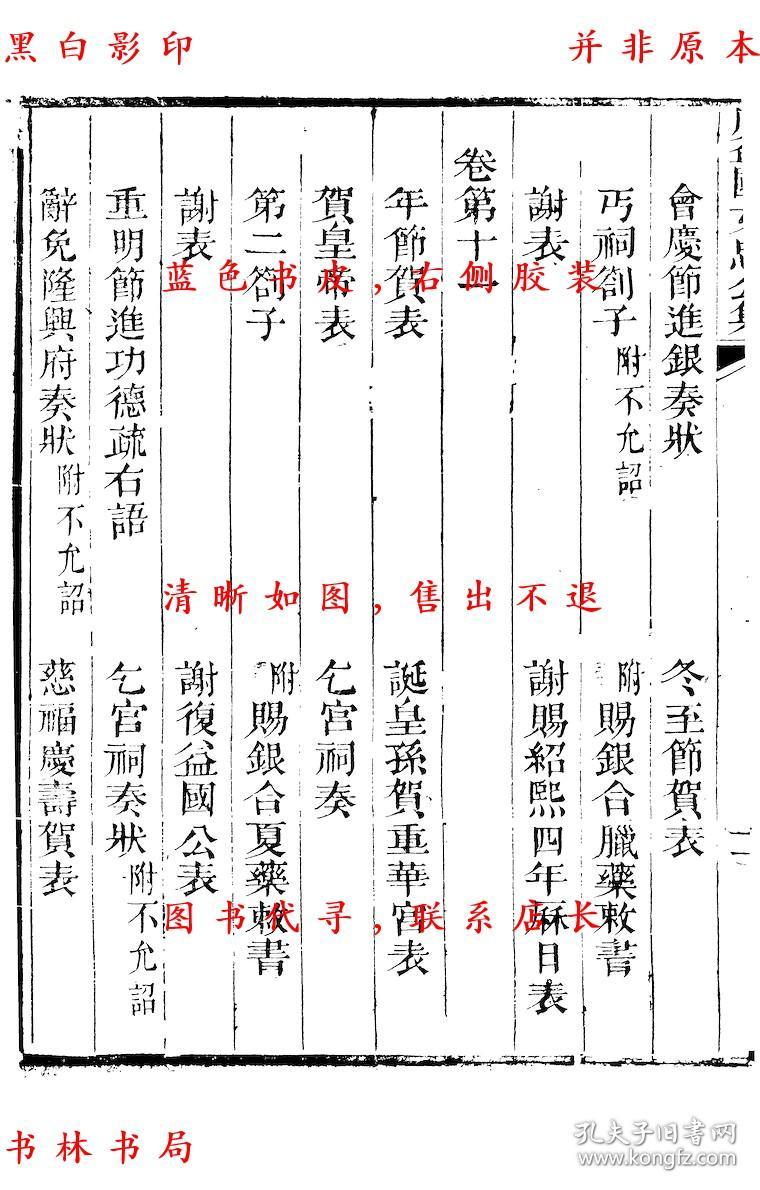 黑白影印
并非原本
會慶節進銀奏狀
冬至節賀表
丐祠劄子 附不允詔
附賜銀合臘藥敕書
謝表
謝賜紹熙四年厤日表
卷第十一
年節賀表
誕皇孫賀重華宮表
賀皇帝表
乞宮祠奏
第二劄子
附賜銀合夏藥敕書
謝表
謝復益國公表
重明節進功德疏右語
乞宮祠奏狀 附不允詔
辭免隆興府奏狀 附不允詔
慈福慶壽賀表
蓝色书皮,右侧胶装
清晰如图,售出不退
图书代寻,联系店长
书林书局
孔夫子旧书网
www.kongfz.com